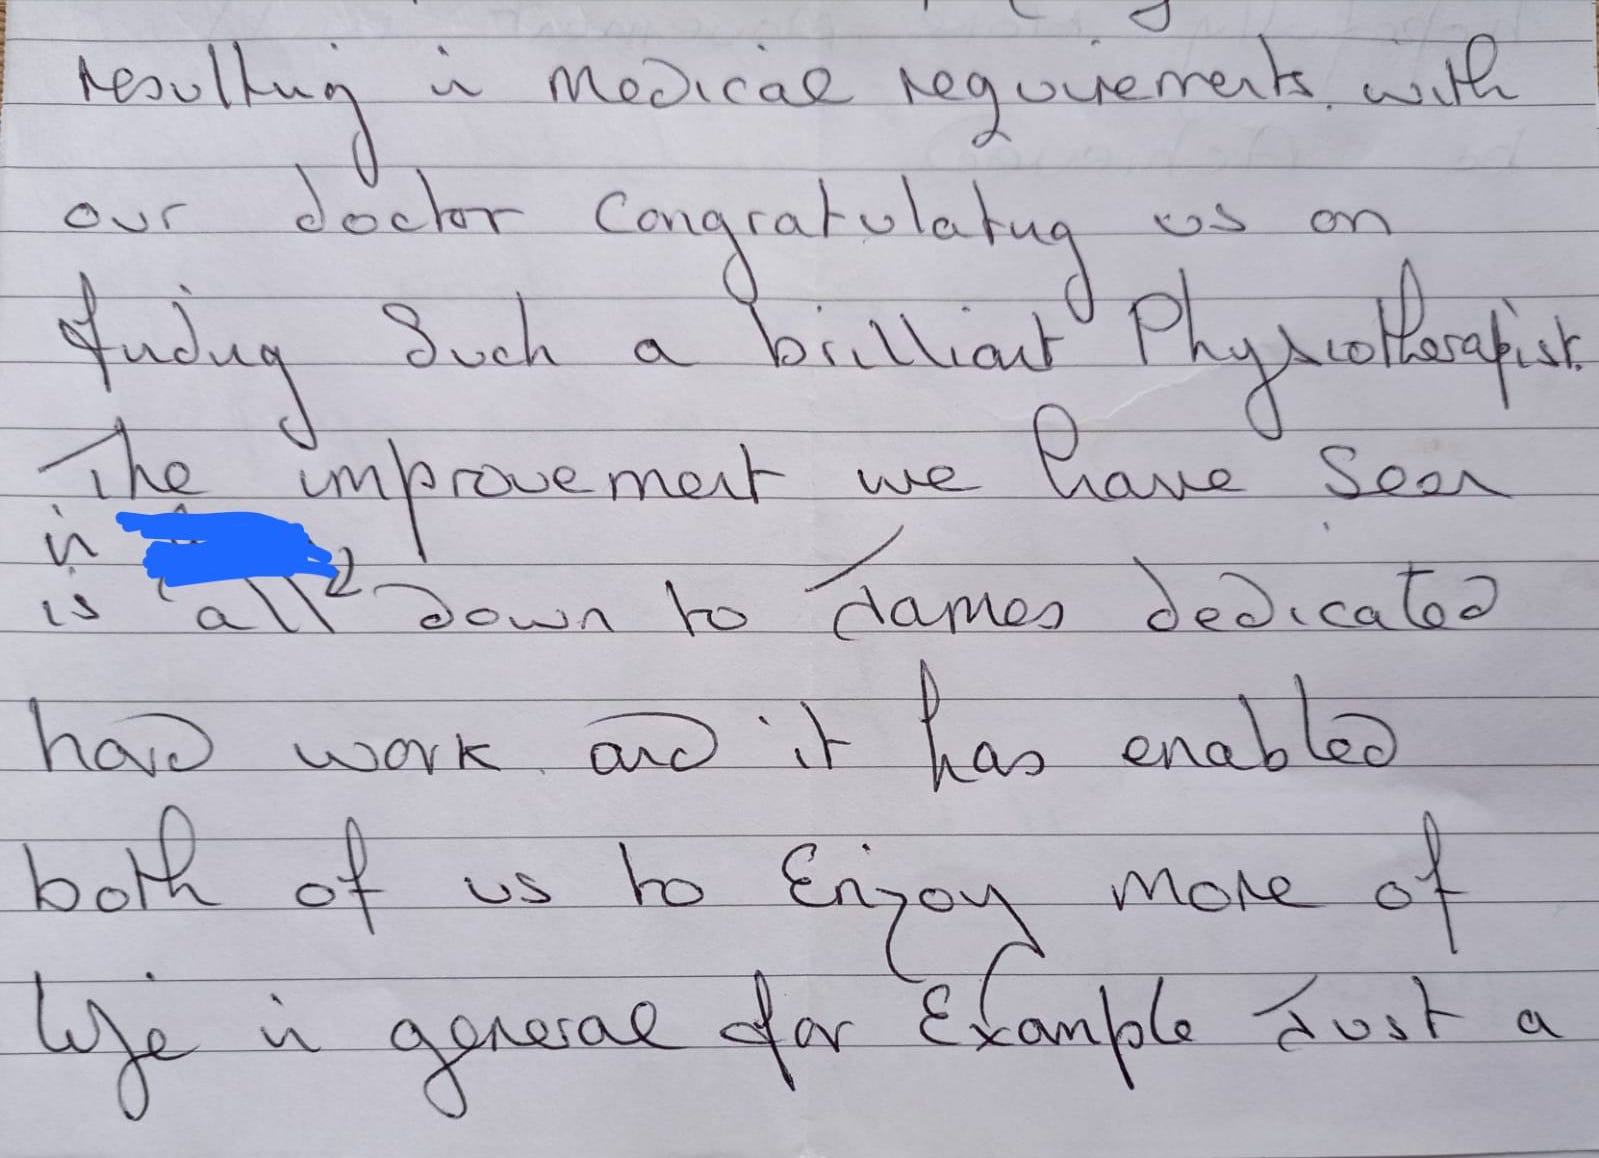 resulting in medical requirements. with
our doctor Congratulating us on
finding Such a brilliant Physiotherapist.
The improvement we have seen
in
is all down to James dedicated
hard work. and it has enabled
both of us to Enjoy more of
life in general for Example Just a